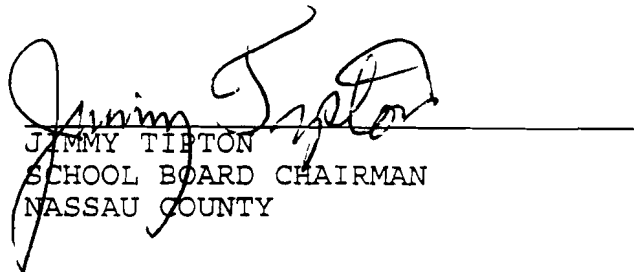 Jimmy Tipton
JIMMY TIPTON
SCHOOL BOARD CHAIRMAN
NASSAU COUNTY